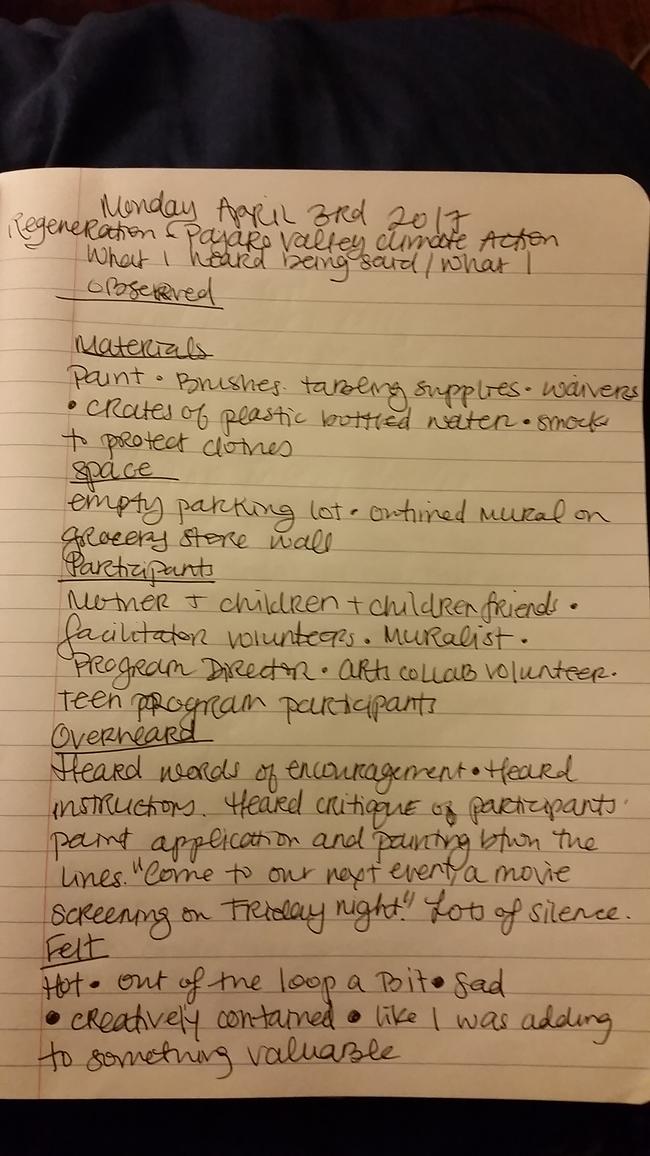 Monday April 3rd 2017
Regeneration - Pajaro Valley Climate Action
What I heard being said/what I
observed
Materials
Paint • Brushes. tabeling supplies • waivers
• crates of plastic bottled water • smock
to protect clothes
Space
empty parking lot • outlined mural on
grocery store wall
Participants
Mother + children + children friends •
facilitator volunteers • Muralist •
Program Director • arts collab volunteer.
teen program participants
Overheard
Heard words of encouragement • Heard
instructions. Heard critique of participants'
paint application and painting btwn the
lines. "Come to our next event, a movie
screening on Friday night." Lots of silence.
Felt
Hot • out of the loop a bit • sad
• creatively contained • like I was adding
to something valuable